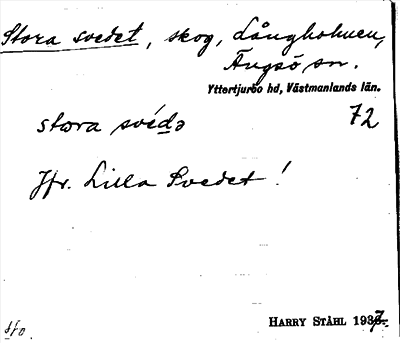 Stora svedet, skog, Långholmen,
Ängsö sn.
Yttertjurbo hd, Västmanlands län.
stora svédə 72
Jfr. Lilla Svedet!
HARRY STÅHL 1937.